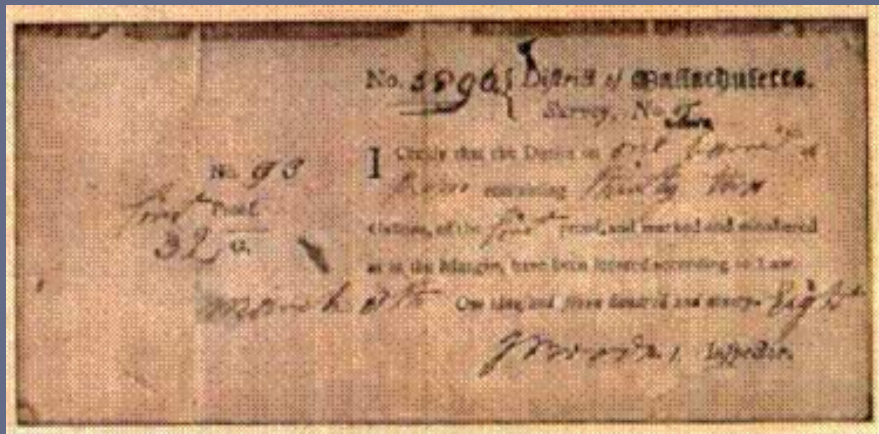 No. 5896 { District of Massachusetts.
Survey, No. Two
No. 93
first Proof
32 G.
I Certify that the Duties on one barrel of
Rum containing thirty two
Gallons, of the first proof, and marked and numbered
as in the Margin, have been secured according to Law.
March 8th One thousand seven hundred and ninety-Eight
Inspector.